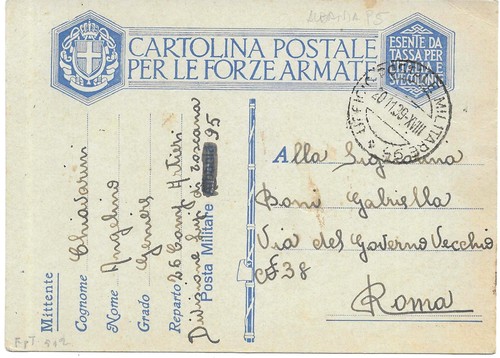 ALBANIA 95
CARTOLINA POSTALE
PER LE FORZE ARMATE
ESENTE DA
TASSA PER
UFFICIO POSTALE MILITARE 95
20.11.39-XVIII
Mittente
Cognome Chiavarini
Nome Angelino
Grado Geniere
Reparto 26 Comp Artieri
Divisione Lupi di Toscana
Posta Militare 95
Alla Signorina
Boni Gabriella
Via del Governo Vecchio
38
Roma